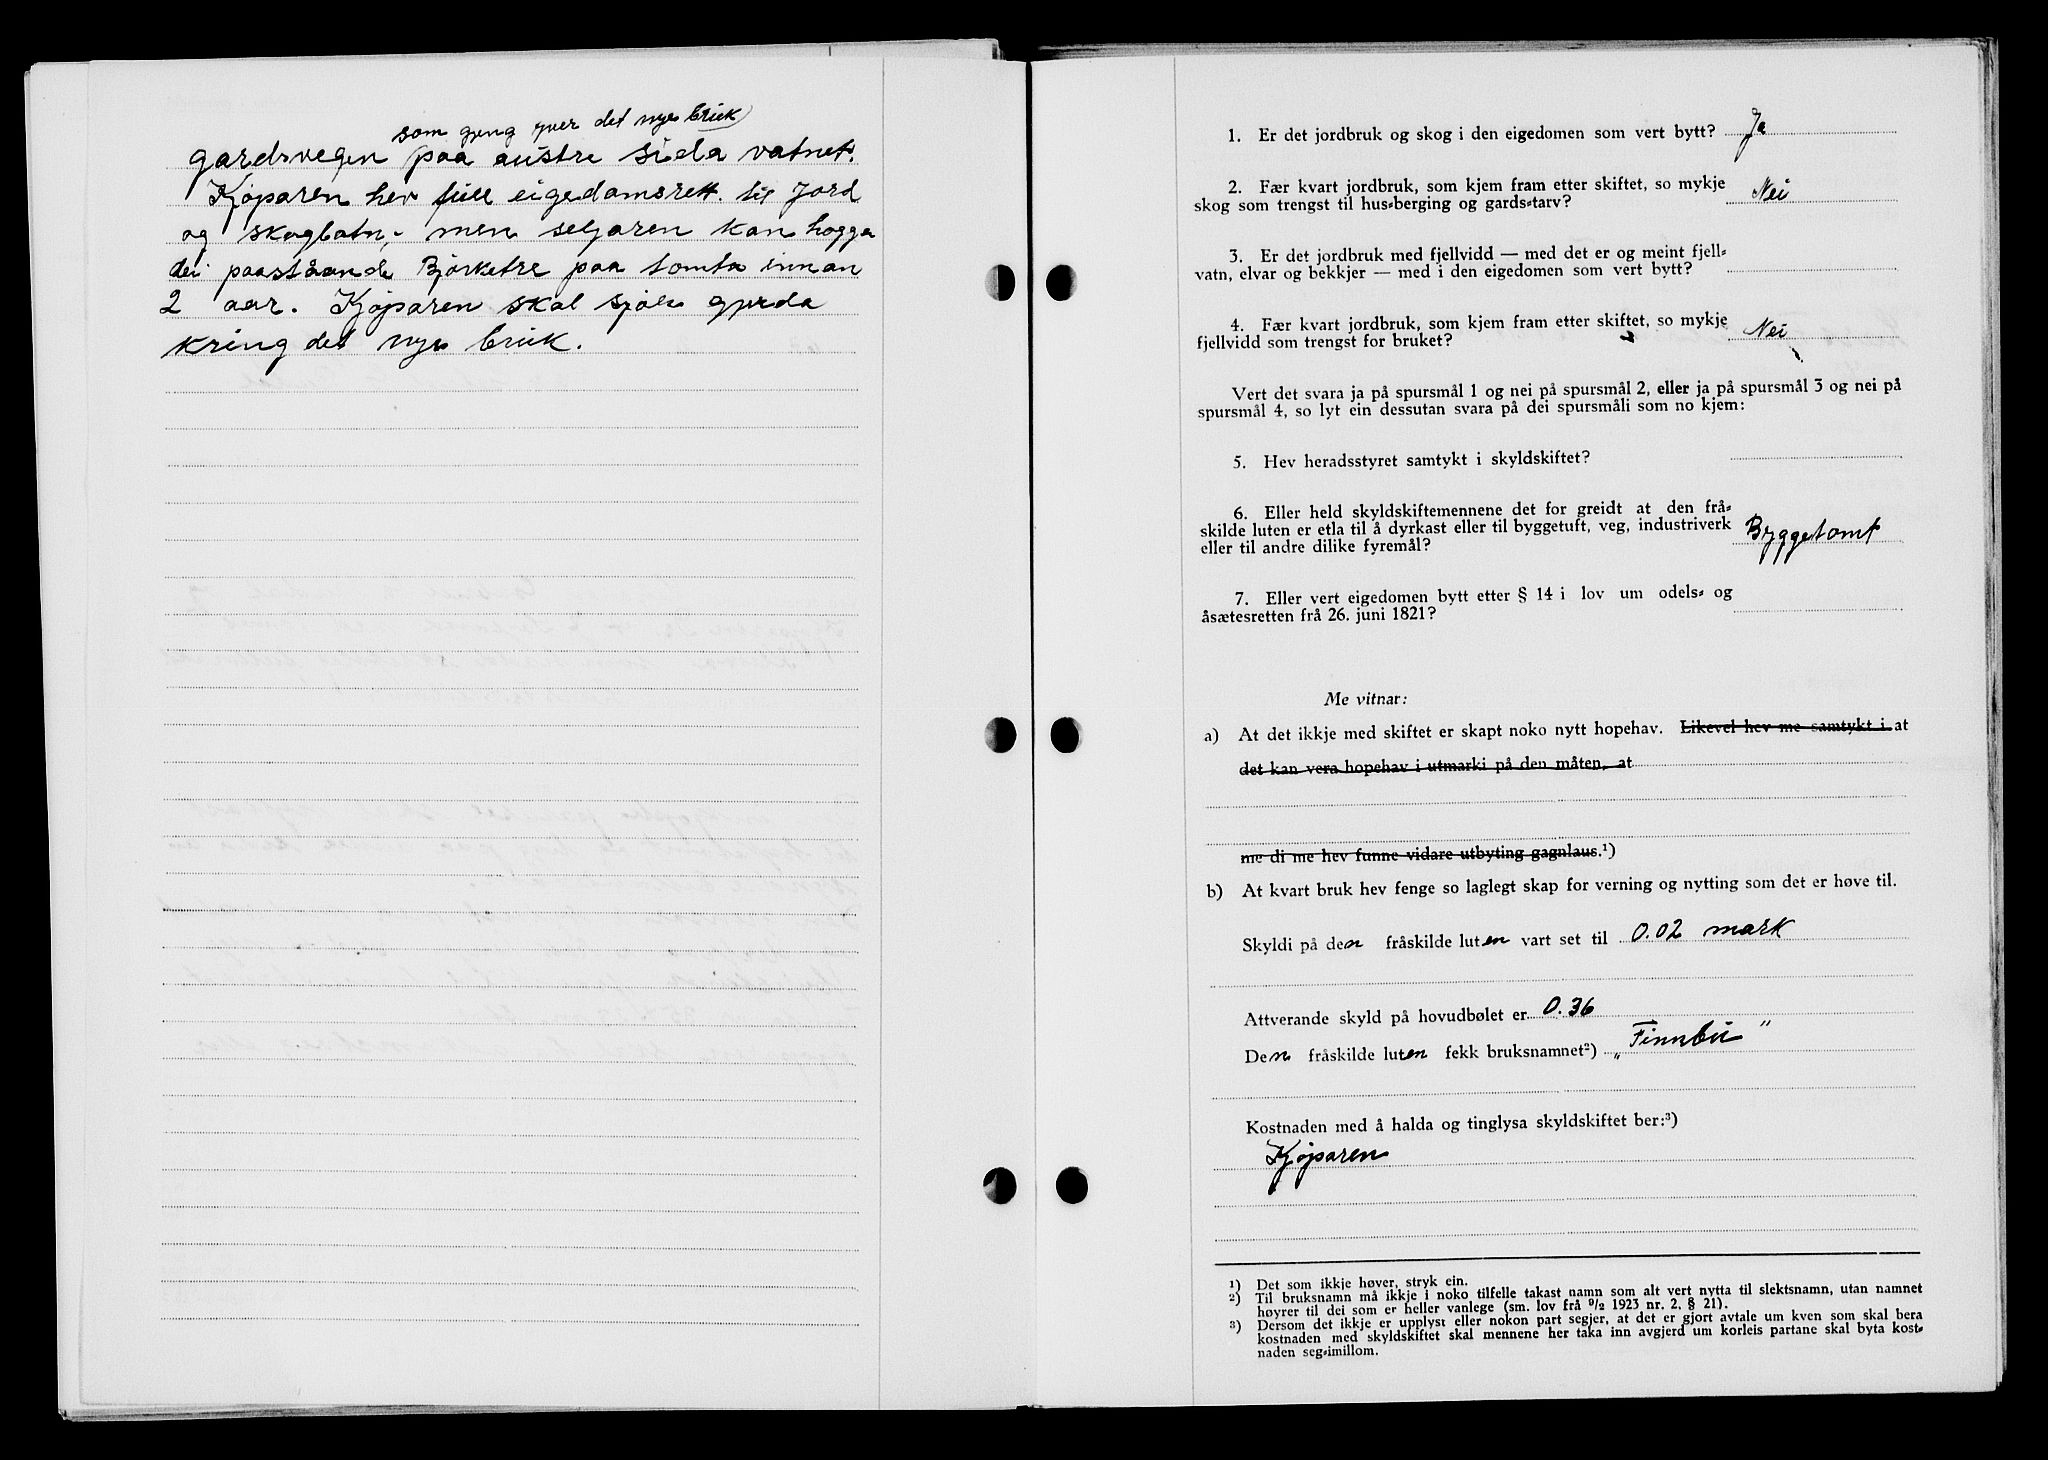 som gjeng yver det nye bruk
gardsvegen paa austre sida vatnet.
Kjøparen hev full eigedomsrett til Jord
og skogbotn, - men seljaren kan hogga
dei paastaande Bjørketre paa tomta innan
2 aar. Kjøparen skal sjølv gjerda
kring det nye bruk.
1. Er det jordbruk og skog i den eigedomen som vert bytt? Ja
2. Fær kvart jordbruk, som kjem fram etter skiftet, so mykje
skog som trengst til hus-berging og gards-tarv? Nei
3. Er det jordbruk med fjellvidd — med det er og meint fjell-
vatn, elvar og bekkjer — med i den eigedomen som vert bytt?
4. Fær kvart jordbruk, som kjem fram etter skiftet, so mykje
fjellvidd som trengst for bruket? Nei
Vert det svara ja på spursmål 1 og nei på spursmål 2, eller ja på spursmål 3 og nei på
spursmål 4, so lyt ein dessutan svara på dei spursmåli som no kjem:
5. Hev heradsstyret samtykt i skyldskiftet?
6. Eller held skyldskiftemennene det for greidt at den frå-
skilde luten er etla til å dyrkast eller til byggetuft, veg, industriverk
eller til andre dilike fyremål? Byggetomt
7. Eller vert eigedomen bytt etter § 14 i lov um odels- og
åsætesretten frå 26. juni 1821?
Me vitnar:
a) At det ikkje med skiftet er skapt noko nytt hopehav. Likevel hev me samtykt i at
det kan vera hopehav i utmarki på den måten, at
me di me hev funne vidare utbyting gagnlaus.¹)
b) At kvart bruk hev fenge so laglegt skap for verning og nytting som det er høve til.
Skyldi på den fråskilde luten vart set til 0.02 mark
Attverande skyld på hovudbølet er 0.36
Den fråskilde luten fekk bruksnamnet²) „Finnbu"
Kostnaden med å halda og tinglysa skyldskiftet ber:³)
Kjøparen
¹) Det som ikkje høver, stryk ein.
²) Til bruksnamn må ikkje i noko tilfelle takast namn som alt vert nytta til slektsnamn, utan namnet
høyrer til dei som er heller vanlege (sm. lov frå ⁹/₂ 1923 nr. 2, § 21).
³) Dersom det ikkje er upplyst eller nokon part segjer, at det er gjort avtale um kven som skal bera
kostnaden med skyldskiftet skal mennene her taka inn avgjerd um korleis partane skal byta kost-
naden seg-imillom.